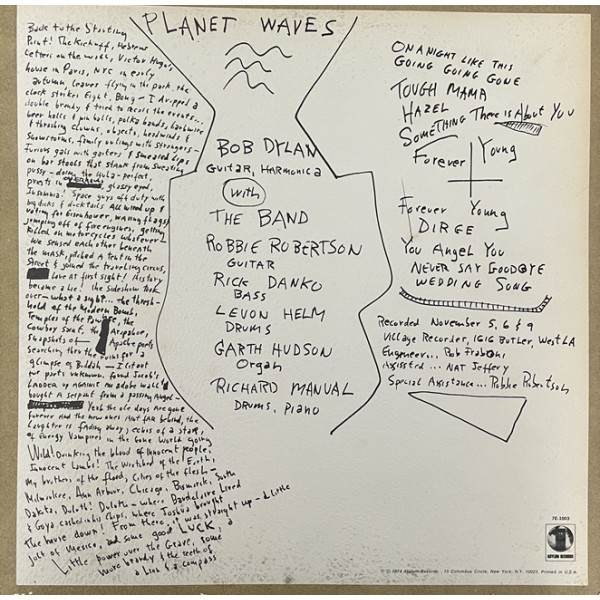 PLANET WAVES
Back to the Starting
Point! The Kickoff, Hebrew
Letters on the wall, Victor Hugo's
house in Paris, NYC in early
autumn, leaves flying in the park, the
clock strikes Eight, Bong — I dropped a
double brandy & tried to recall the events...
beer halls & pin balls, polka bands, barbwire
& thrashing clowns, objects, headwinds &
snowstorms, family outings with strangers —
Furious gals with garters & smeared Lips
on bar stools that stank from sweating
pussy — doing the Hula — perfect,
priests in glassy eyed,
Insomnia! Space guys off duty with
big dicks & ducktails All wired up &
voting for Eisenhower, waving flags &
jumping off of fire engines, getting
killed on motorcycles whatever —
We sensed each other beneath
the mask, pitched a tent in the
Street & joined the traveling circus,
Love at first sight! History
became a lie! the sideshow took
over — what a sight... the thresh-
hold of the Modern Bomb,
Temples of the Pawnee, the
Cowboy saint, the Arapahoe,
snapshots of Apache poets
searching thru the ruins for a
glimpse of Buddah — I lit out
for parts unknown, found Jacob's
Ladder up against an adobe wall &
bought A serpent from a passing Angel —
Yeah the ole days Are gone
forever And the new ones Aint far behind, the
Laughter is fading away, echos of a star,
of Energy Vampires in the Gone World going
Wild! Drinking the blood of innocent people,
Innocent Lambs! The Wretched of the Earth,
My brothers of the flood, Cities of the flesh —
Milwaukee, Ann Arbor, Chicago, Bismarck, South
Dakota, Duluth! Duluth — where Baudelaire Lived
& Goya cashed in his Chips, where Joshua brought
the house down! From there, it was straight up — a Little
jolt of Mexico, and some good LUCK, a
Little power over the Grave, some
more brandy & the teeth of
a Lion & a compass
BOB DYLAN
GUITAR, HARMONICA
With
THE BAND
ROBBIE ROBERTSON
GUITAR
RICK DANKO
BASS
LEVON HELM
DRUMS
GARTH HUDSON
Organ
RICHARD MANUAL
DRUMS, PIANO
ON A NIGHT LIKE THIS
GOING GOING GONE
TOUGH MAMA
HAZEL
SOMETHING There is About You
Forever Young
Forever Young
DIRGE
You Angel You
NEVER SAY GOODBYE
WEDDING SONG
Recorded November 5, 6 & 9
Village Recorder, 1616 BUTLER, West LA
Engeneer... Rob Fraboni
Assissted... NAT Jeffery
Special Assistance... Robbie Robertson
7E-1003
ASYLUM RECORDS
℗ © 1974 Asylum Records, 15 Columbus Circle, New York, N.Y. 10023. Printed in U.S.A.